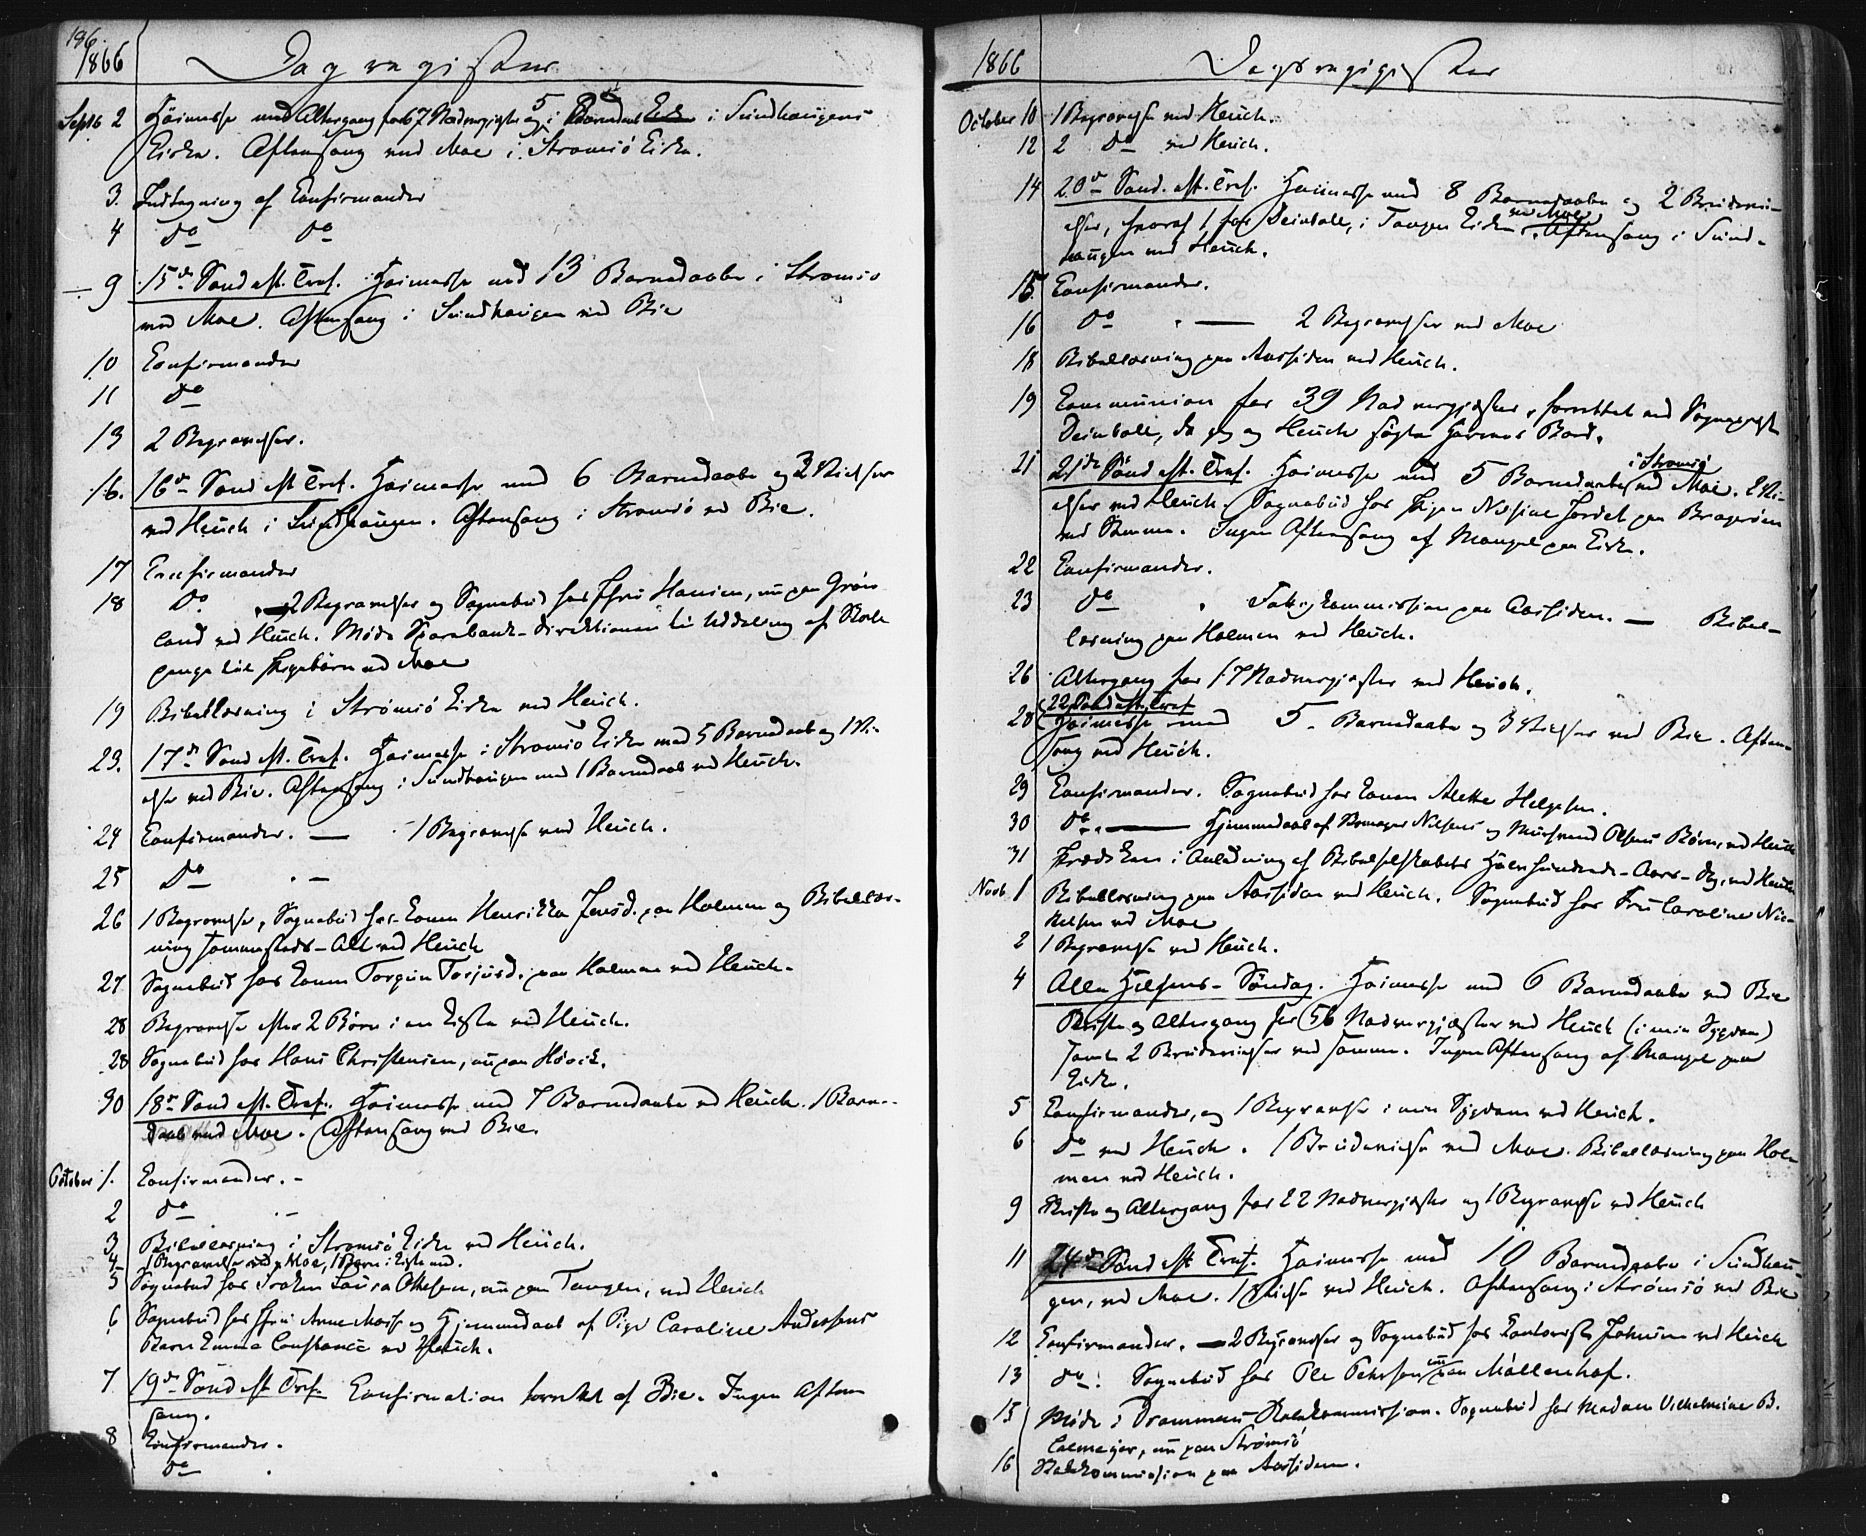 196.
1866 Dagregister
Septb 2 Høimesse med Altergang for 67 Nadvergjester og 5 Barnedaab i Sundhaugens
Kirke. Aftensang ved Moe i Strømsø Kirke.
3. Indtagning af Confirmander
4 Do Do
9 15de Sønd eft. Tref. Høimesse med 13 Barnedaabe i Strømsø
ved Moe. Aftensang i Sundhaugen ved Bie
10 Confirmander
11 Do
13 2 Begravelser.
16. 16de Sønd eft Tref. Høimesse med 6 Barnedaabe og 2 Vielser
ved Heuch i Sundhaugen. Aftensang i Strømsø ved Bie.
17 Confirmander
18 Do 2 Begravelser og Sognebud hos Hansen, nu paa Grøn
land ved Heuch. Møde Sparebank-Direktionen til Uddeling af Skole
penge til Pigebørn ved Moe
19 Bibellæsning i Strømsø Kirke ved Heuch.
23. 17de Sønd eft. Tref. Høimesse i Strømsø Kirke med 5 Barnedaab og 1 Vi-
else ved Bie. Aftensang i Sundhaugen med 1 Barnedaab ved Heuch.
24 Confirmander. — 1 Begravelse ved Heuch.
25 Do —
26 1 Begravelse, Sognebud hos Konen Henrikke Jensd. paa Holmen og Bibellæs-
ning sammesteds - Alt ved Heuch
27 Sognebud hos Konen Torgun Torjusd. paa Holmen ved Heuch.
28 Begravelse efter 2 Børn i en Kiste ved Heuch.
28 Sognebud hos Hans Christensen, nu paa
30 18de Sønd eft. Tref. Høimesse med 7 Barnedaabe ved Heuch. 1 Barne-
daab ved Moe. Aftensang ved Bie.
October 1. Confirmander. -
2 Do -
3 Bibellæsning i Strømsø Kirke ved Heuch.
4 1 Begravelse ved Moe, 1 Barn i Kiste ved.
5 Sognebud hos Laura Ottesen, nu paa Tangen, ved Heuch
6 Sognebud hos Anne Moe og Hjemmedaab af Pige Caroline Andersens
Barn Emma Constance ved Heuch.
7 19de Sønd eft Tref. Confirmation forrettet af Bie. Ingen Aften
sang.
8 Confirmander.
Do
1866 Dagsregister
October 10 1 Begravelse ved Heuch.
12 2 Do ved Heuch.
14 20de Sønd. eft. Tref. Høimesse med 8 Barnedaabe og 2 Brudevi-
elser, hvoraf 1 for Deinboll, i Tangen Kirke ved Moe. Aftensang i Sund-
haugen ved Heuch.
15. Confirmander.
16 Do — 2 Begravelser ved Moe
18 Bibellæsning paa Aassiden ved Heuch.
19 Communion for 39 Nadvergjester, forrettet ved Sognepræst
Deinboll, da jeg og Heuch søgte Bord.
21 21de Sønd eft. Tref. Høimesse med 5 Barnedaabe i Strømsø ved Moe. 2 Vi-
elser ved Heuch. Sognebud hos Pigen Nilsine paa Bragernes
ved Samme. Ingen Aftensang af Mangel paa Kirke.
22 Confirmander.
23 Do. Fattigkommission paa Aassiden. — Bibel-
læsning paa Holmen ved Heuch.
26 Altergang for 17 Nadvergjester ved Heuch.
22 Sønd eft. Tref
28 Høimesse med 5. Barnedaabe og 3 Vielser ved Bie. Aften-
sang ved Heuch.
29 Confirmander. Sognebud hos Konen Alette Helgesen.
30 Do — Hjemmedaab af Nilsens og Olsens Børn, ved Heuch
31 Præken i Anledning af Bibelselskabets Halvhundrede-Aars-Dag, ved Heuch
Novb 1 Bibellæsning paa Aassiden ved Heuch. Sognebud hos Fru Caroline
ved Moe
2 1 Begravelse ved Heuch.
4 Alle Helgens-Søndag. Høimesse med 6 Barnedaabe ved Bie
Skrifte og Altergang for 56 Nadvergjester ved Heuch (i min Sygdom)
samt 2 Brudevielser ved samme. Ingen Aftensang af Mangel paa
Kirke.
5 Confirmander, og 1 Begravelse i min Sygdom ved Heuch.
6 Do ved Heuch. 1 Brudevielse ved Moe. Bibellæsning paa Hol-
men ved Heuch.
9 Skrifte og Altergang for 22 Nadvergjester og 1 Begravelse ved Heuch
11 24de Sønd eft Tref. Høimesse med 10 Barnedaabe i Sundhau-
gen, ved Moe. 1 Vielse ved Heuch. Aftensang i Strømsø ved Bie
12 Confirmander. — 2 Begravelser og Sognebud hos ved Heuch
13 Do. Sognebud hos Ole Pehrsen nu paa Møllenhof.
15 Møde i Drammens Skolekommission. Sognebud hos Madam Vilhelmine B.
Calmeyer, nu paa Strømsø
16 Skolekommission paa Aassiden.